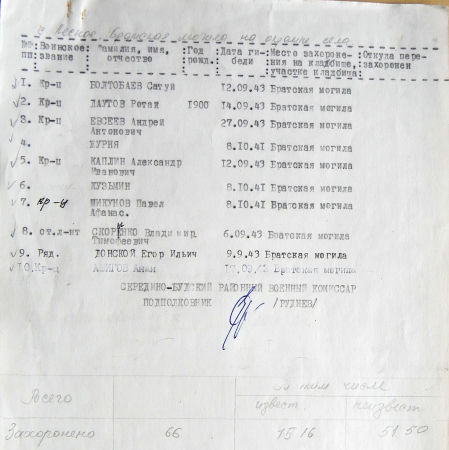 с. Лесное, братская могила на окраине села
№№ пп : Воинское звание : Фамилия, имя, отчество : Год рожд. : Дата гибели : Место захоронения на кладбище, участке кладбища : Откуда перезахоронен
1. Кр-ц БОЛТОБАЕВ Сатуй 12.09.43 Братская могила
2. Кр-ц ДАУТОВ Ретай 1900 14.09.43 Братская могила
3. Кр-ц ЕВСЕЕВ Андрей 27.09.43 Братская могила
Антонович
4. ЖУРНЯ 8.10.41 Братская могила
5. Кр-ц КАПЛИН Александр 12.09.43 Братская могила
Иванович
6. КУЗЬМИН 8.10.41 Братская могила
7. кр-ц МИКУНОВ Павел 8.10.41 Братская могила
Афанас.
8. ст.л-нт СКОРЕНКО Владимир 6.09.43 Братская могила
Тимофеевич
9. Ряд. ДОНСКОЙ Егор Ильич 9.9.43 Братская могила
10. Кр-ц 09.43 Братская могила
СЕРЕДИНО-БУДСКИЙ РАЙОННЫЙ ВОЕННЫЙ КОМИССАР
ПОДПОЛКОВНИК /РУДНЕВ/
Всего В том числе
извест. неизвест
Захоронено 66 15 16 51 50